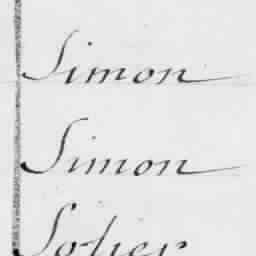 Simon
Simon
Sotier